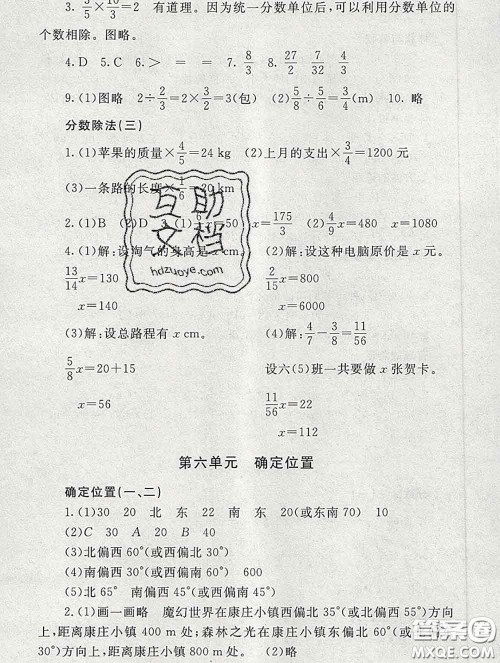 3. 3/5×10/3=2 有道理。因为统一分数单位后,可以利用分数单位的
个数相除。图略。
4. D 5. C 6. > = = 7. 8/3 27/2 7/32 4/3
9. (1)图略 2÷2/3=2×3/2=3(包) (2)5/8÷5/6=3/4(m) 10. 略
分数除法(三)
1. (1)苹果的质量×4/5=24 kg (2)上月的支出×3/4=1200元
(3)一条路的长度×1/6=20 km
2. (1)B (2)D 3. (1) x=50 x=175/3 (2)4/9x=480 x=1080
4. (1)解:设淘气的身高是 cm。 (2)解:设这种电脑原价是 x元。
13/14x=130 2/15x=800
x=140 x=6000
(3)解:设总路程有 x cm。 (4)解:4/7-3/8=11/56
5/8x=20+15 设六(5)班一共要做 x张贺卡。
x=56 11/56x=22
x=112
互助
文档
hdzuoye.com
第六单元 确定位置
确定位置(一、二)
1. (1)30 20 北 东 22 南 东 20(或东南70) 10
(2)C 30 A 20 B 40
(3)北偏西60°(或西偏北30°)
(4)南偏西30°(或西偏南60°) 600
(5)北 65° 南偏西45°(或西偏南45°)
2. (1)画一画略 魔幻世界在康庄小镇西偏北35°(或北偏西55°)方向
上,距离康庄小镇400 m处;森林之光在康庄小镇东偏北60°(或北偏东
30°)方向上,距离康庄小镇800 m处。 (2)略
答案圈
MXQE.COM